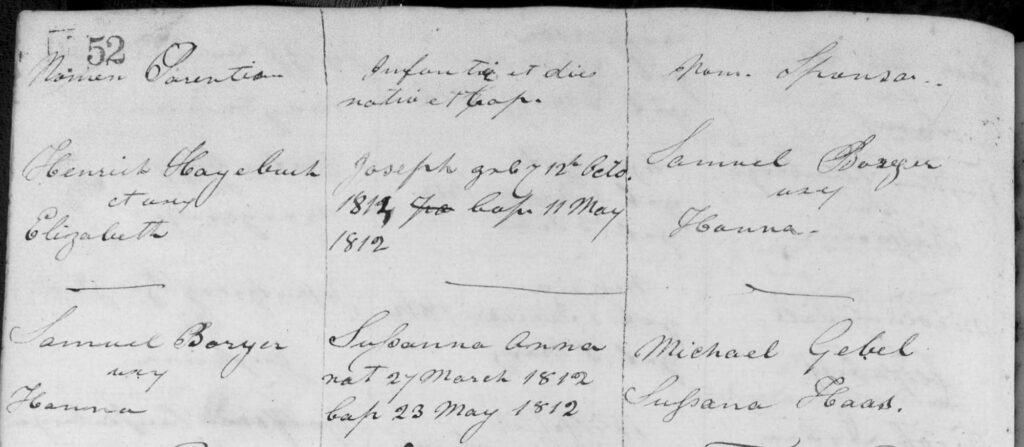 52
Nomen Parentia
Infantia et dies
nativ et bap.
Nom. Sponsor.
Henrich Hagebuch
et uxy
Elizabeth
Joseph geb 12th Octo.
1812, bap 11 May
1812
Samuel Borger
uxy
Hanna.
Samuel Borger
uxy
Hanna
Sußanna Anna
nat 27 March 1812
bap 23 May 1812
Michael Gebel
Sußana Haas.